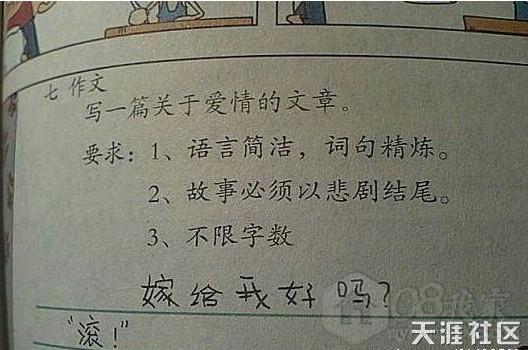 七 作文
写一篇关于爱情的文章。
要求：1、语言简洁，词句精炼。
2、故事必须以悲剧结尾。
3、不限字数
嫁给我好吗？
"滚！"
天涯社区